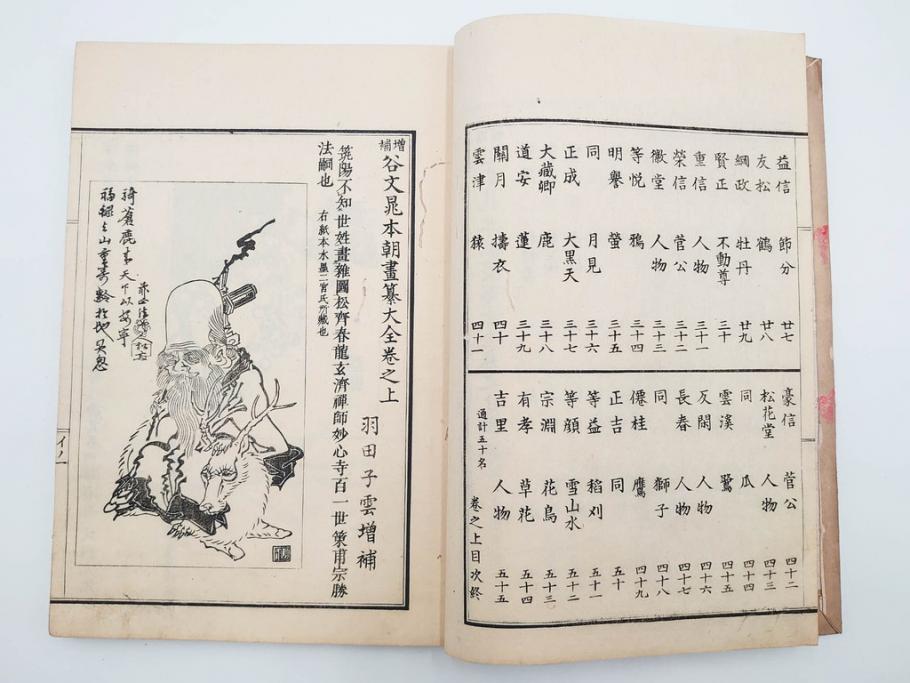 益信 節分 廿七
友松 鶴 廿八
綱政 牡丹 廿九
賢正 不動尊 三十
重信 人物 三十一
榮信 菅公 三十二
徽堂 人物 三十三
等悦 鴉 三十四
明譽 螢 三十五
同 月見 三十六
正成 大黑天 三十七
大藏卿 鹿 三十八
道安 蓮 三十九
關月 擣衣 四十
雲津 猿 四十一
豪信 菅公 四十二
松花堂 人物 四十三
同 瓜 四十四
雲溪 鷺 四十五
友閑 人物 四十六
長春 人物 四十七
同 獅子 四十八
僊桂 鷹 四十九
正吉 同 五十
等益 稻刈 五十一
等顔 雪山水 五十二
宗淵 花鳥 五十三
有孝 草花 五十四
吉里 人物 五十五
通計五十名 卷之上目次終
增補 谷文晁本朝畫纂大全卷之上
羽田子雲增補
筑陽不知世姓畫雜圖松齊春龍玄濟禪師妙心寺百一世策甫宗勝
法嗣也 右紙本水墨二宮氏所藏也
騎蒼鹿兮天下以安寧
福祿之山重壽齡於地
イノ一